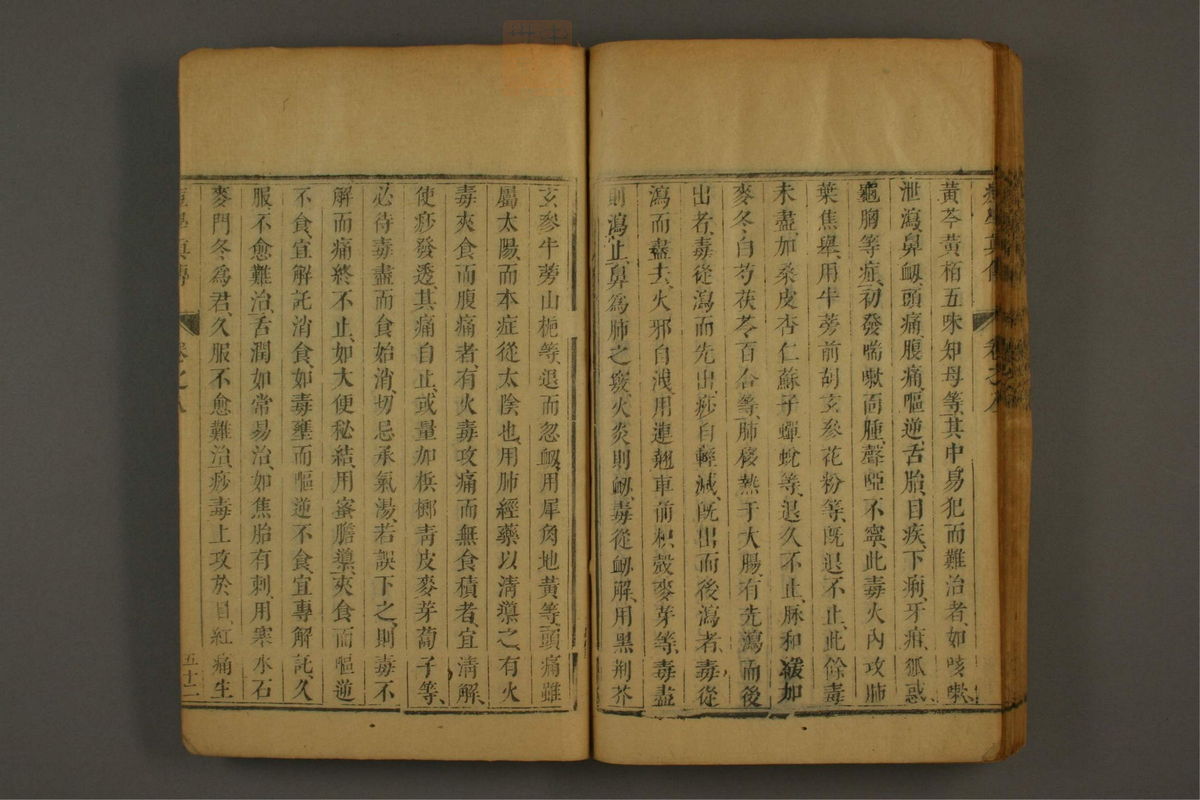 黃芩黃栢五味知母等其中易犯而難治者如咳嗽
泄瀉鼻衂頭痛腹痛嘔逆舌胎目疾下痢牙疳狐惑
龜胸等症初發喘嗽面腫聲啞不寧此毒火內攻肺
葉焦舉用牛蒡前胡玄參花粉等旣退不止此餘毒
未盡加桑皮杏仁蘇子蟬蛻等退久不止脉和緩加
麥冬白芍茯苓百合等肺移熱于大腸有先瀉而後
出者毒從瀉而先出痧自輕減旣出而後瀉者毒從
瀉而盡去火邪自洩用連翹車前枳殼麥芽等毒盡
則瀉止鼻為肺之竅火炎則衂毒從衂解用黑荆芥
玄參牛蒡山梔等退而忽衂用犀角地黃等頭痛雖
屬太陽而本症從太陰也用肺經藥以清導之有火
毒夾食而腹痛者有火毒攻痛而無食積者宜清解
使痧發透其痛自止或量加檳榔青皮麥芽蔔子等
必待毒盡而食始消切忌承氣湯若誤下之則毒不
解而痛終不止如大便秘結用蜜膽導夾食而嘔逆
不食宜解託消食如毒壅而嘔逆不食宜專解託久
服不愈難治舌潤如常易治如焦胎有刺用寒水石
麥門冬為君久服不愈難治痧毒上攻於目紅痛生
卷之八
五十二